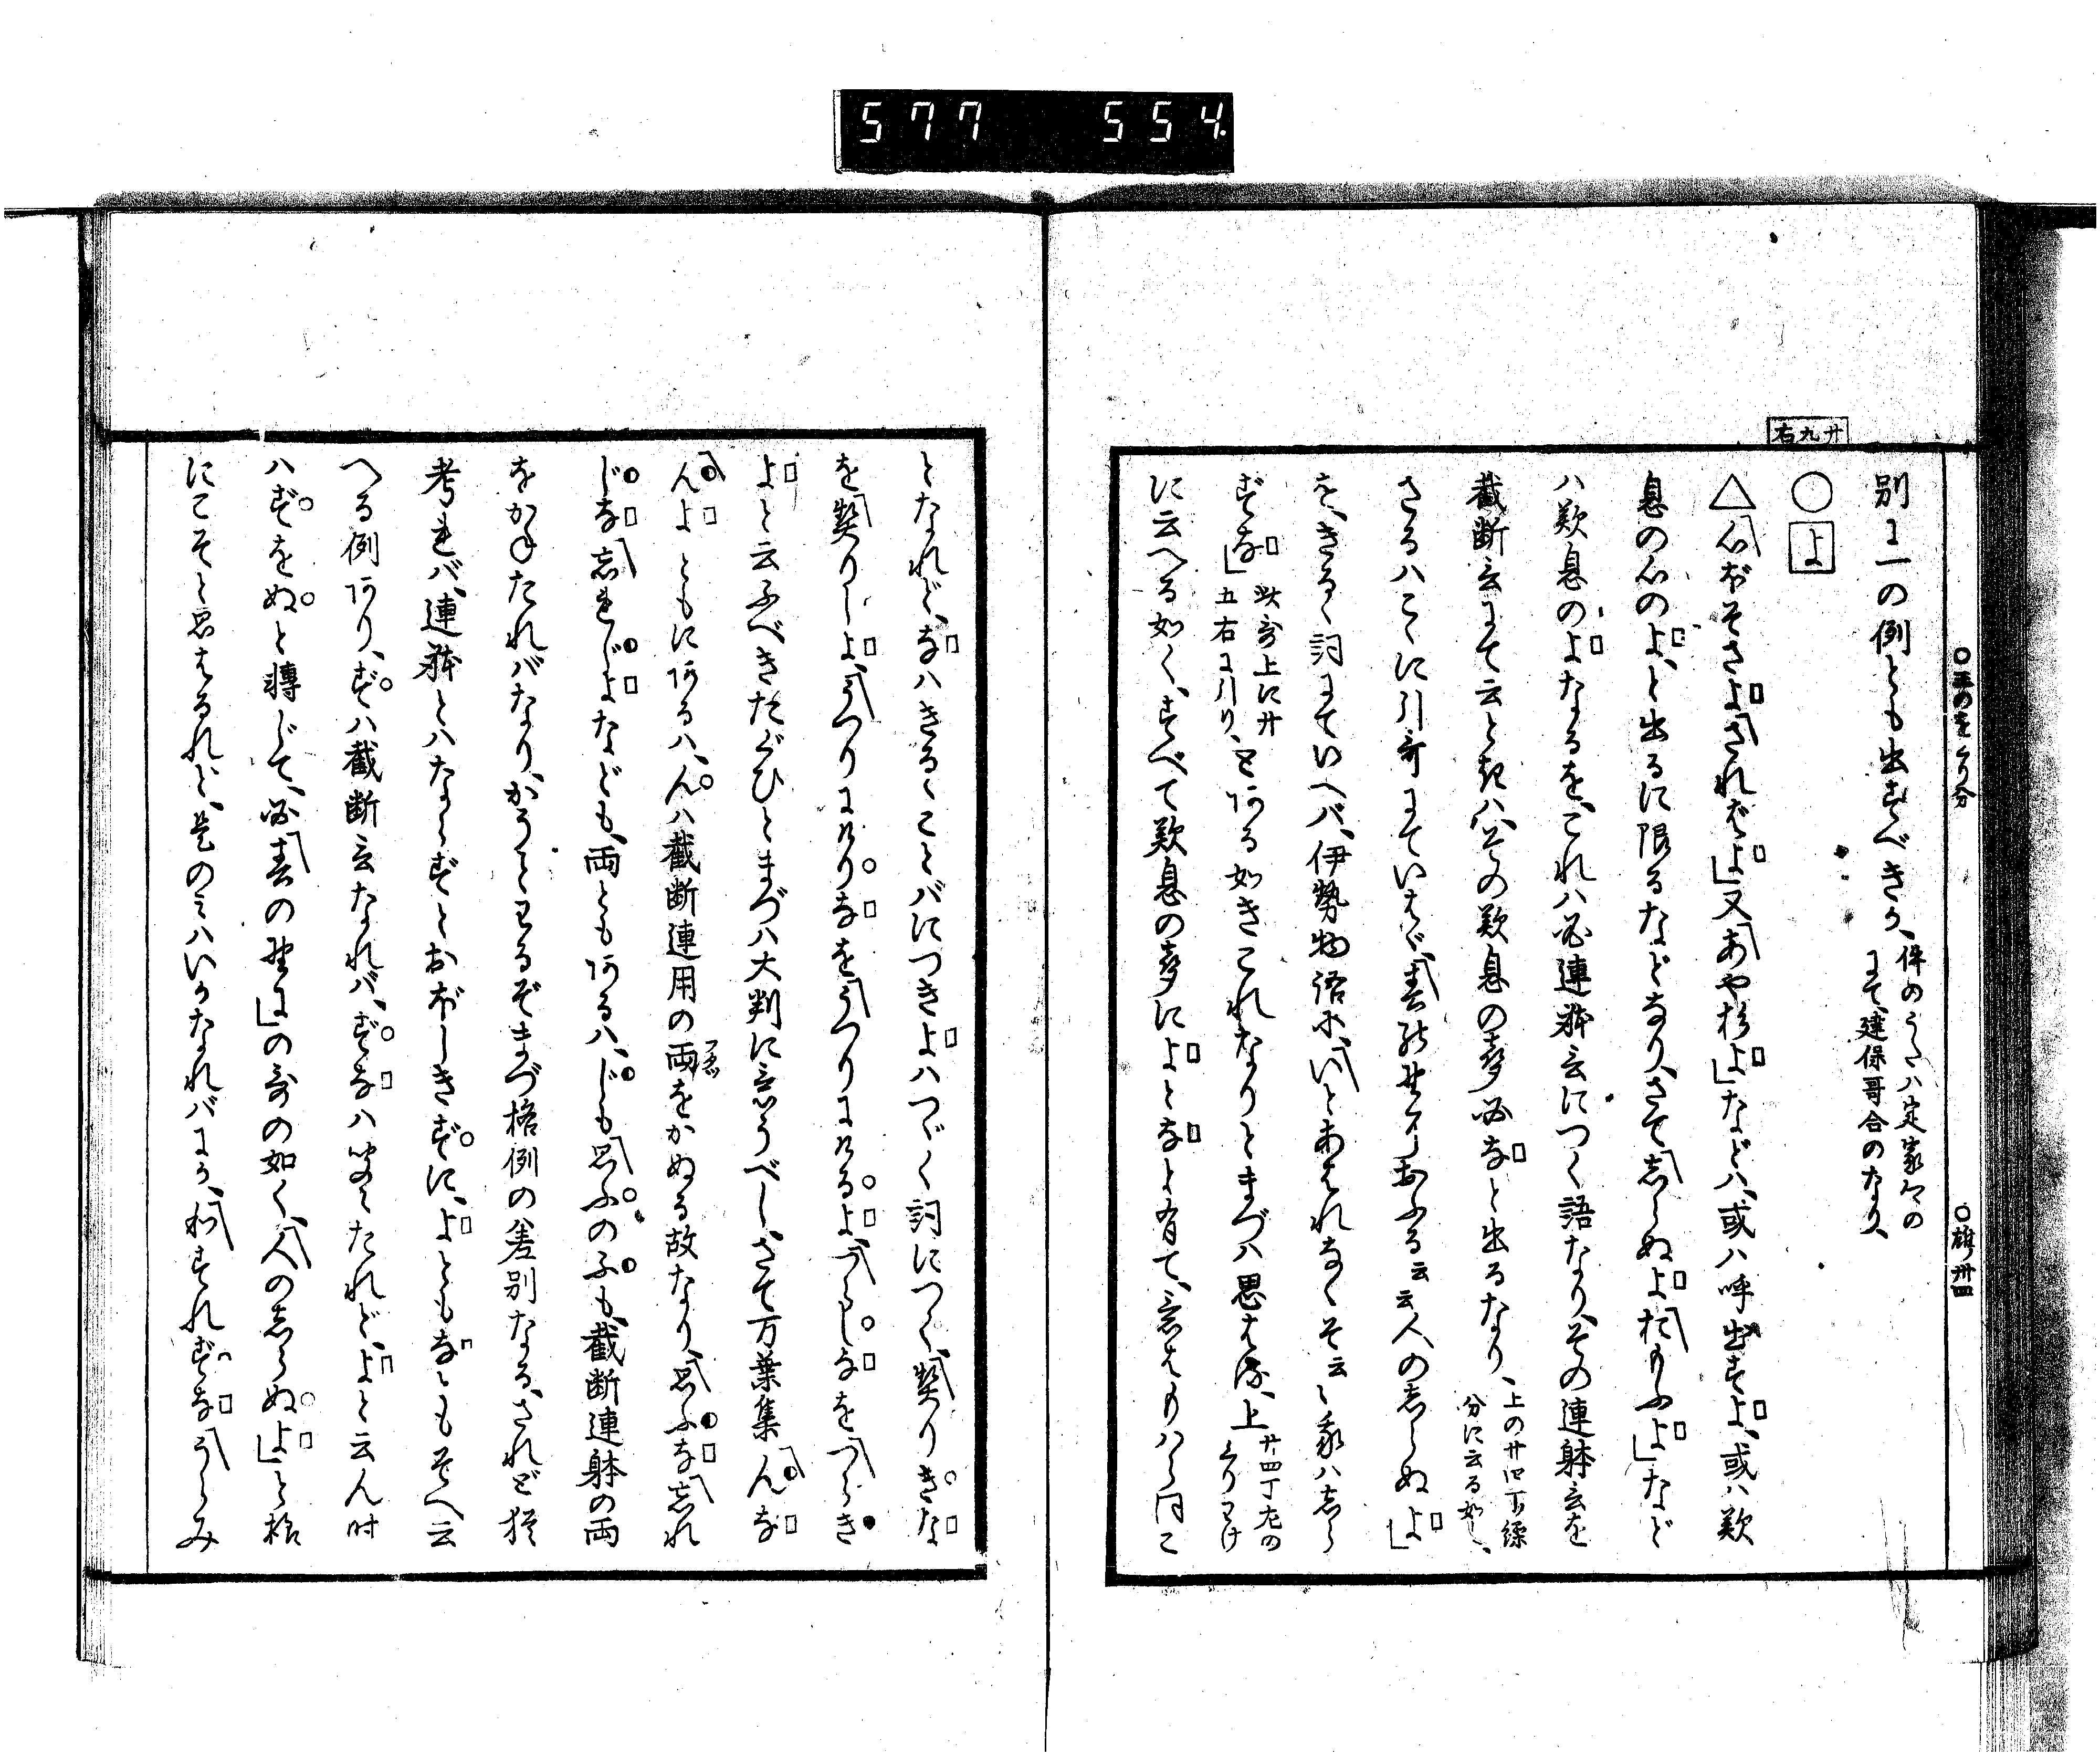 577 554
廿九右
○玉のをくり分
○補 卅四
別に一の例とも出すべきか、
件のうたハ定家卿の
にて、建保哥合のなり、
○よ
△心ぼそさよ「されバよ」又「あや杉よ」などハ、或ハ呼出すよ、或ハ歎
息の心のよ、と出るに限るなどなり、さて「志らぬよ「たまふよ」など
ハ歎息のよなるを、これハ必連躰言につく語なり、その連躰言を
截断言にて云ときハ、その歎息の辞必なと出るなり、
上の廿四丁縹
分に云る如し、
さるハこゝに引哥にていはゞ、云云人の志らぬよ」
を、きるゝ詞にていへバ、伊勢物語に、「いとあはれなくそ云々我ハ志ら
ずな」
此哥上に廿
五右に引り、
とある如きこれなりとまづハ思はる、上
廿四丁左の
くりわけ
に云へる如く、すべて歎息の辞によとなと有て、意はもハら同こ
となれど、なハきるゝことバにつきよハつゞく詞につく、「契りきな
を「契りしよ、「うつりにけりなを「うつりにけるよ、「つらしなを「つらき
よと云ふべきたぐひとまづハ大判に意うべし、さて万葉集「んな
「んよともにあるハ、んハ截断連用の両をかぬる故なり、「思ふな「忘れ
じな「忘れじよなども、両ともあるハ、じも「思ふのふも、截断連躰の両
をかねたれバなり、かうとわるぞまづ格例の差別なる、されど猶
考れバ、連躰とハならずとおぼしきずに、よともなともそへ云
へる例あり、ずハ截断言なれバ、ずなハ聞えたれど、よと云ん時
ハずをぬと轉じて、必「春の野に」の哥の如く、「人の志らぬよ」と格
にこそと思はるれど、是のミハいかなれバにか、「わすれずな「うらみ